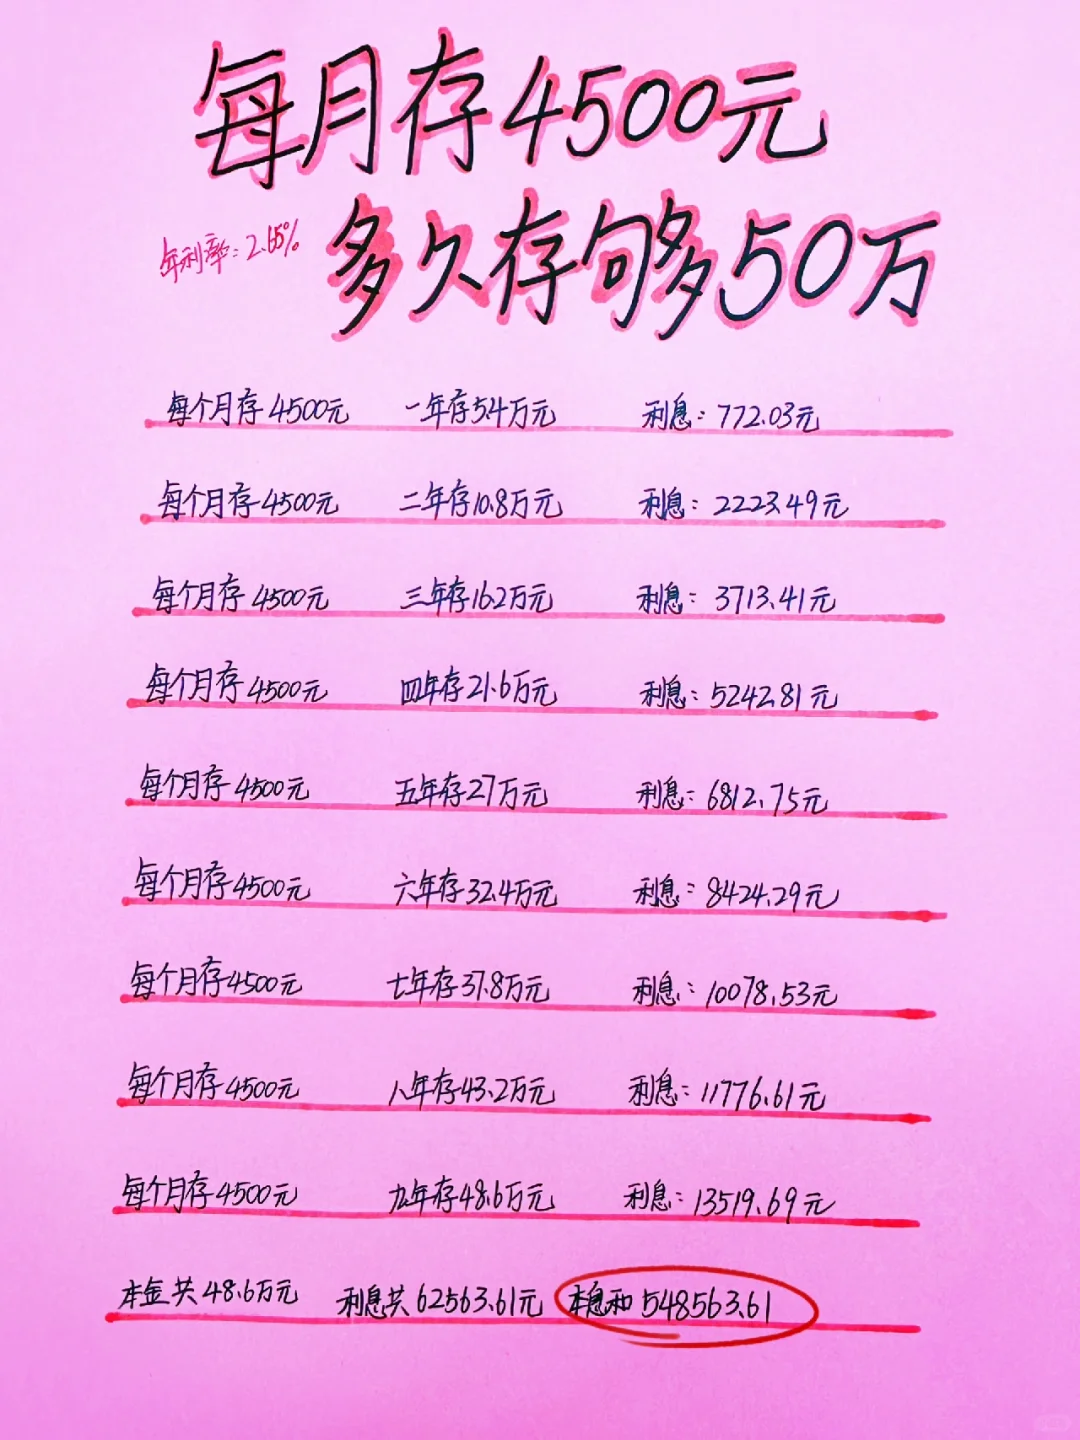 每月存4500元
年利率:2.65%
多久存够50万
每个月存4500元 一年存5.4万元 利息:772.03元
每个月存4500元 二年存10.8万元 利息:2223.49元
每个月存4500元 三年存16.2万元 利息:3713.41元
每个月存4500元 四年存21.6万元 利息:5242.81元
每个月存4500元 五年存27万元 利息:6812.75元
每个月存4500元 六年存32.4万元 利息:8424.29元
每个月存4500元 七年存37.8万元 利息:10078.53元
每个月存4500元 八年存43.2万元 利息:11776.61元
每个月存4500元 九年存48.6万元 利息:13519.69元
本金共48.6万元 利息共62563.61元 本息和548563.61